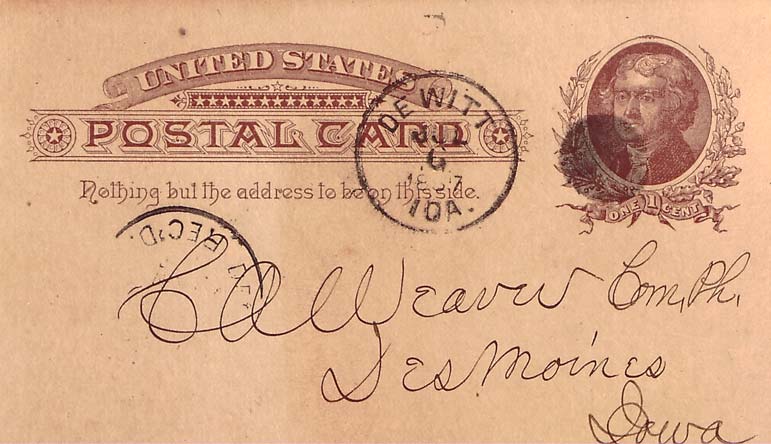 UNITED STATES
POSTAL CARD
Nothing but the address to be on this side.
DE WITT
JUL
IOA.
ONE 1 CENT
REC'D.
C A Weaver Com, Ph,
Des Moines
Iowa